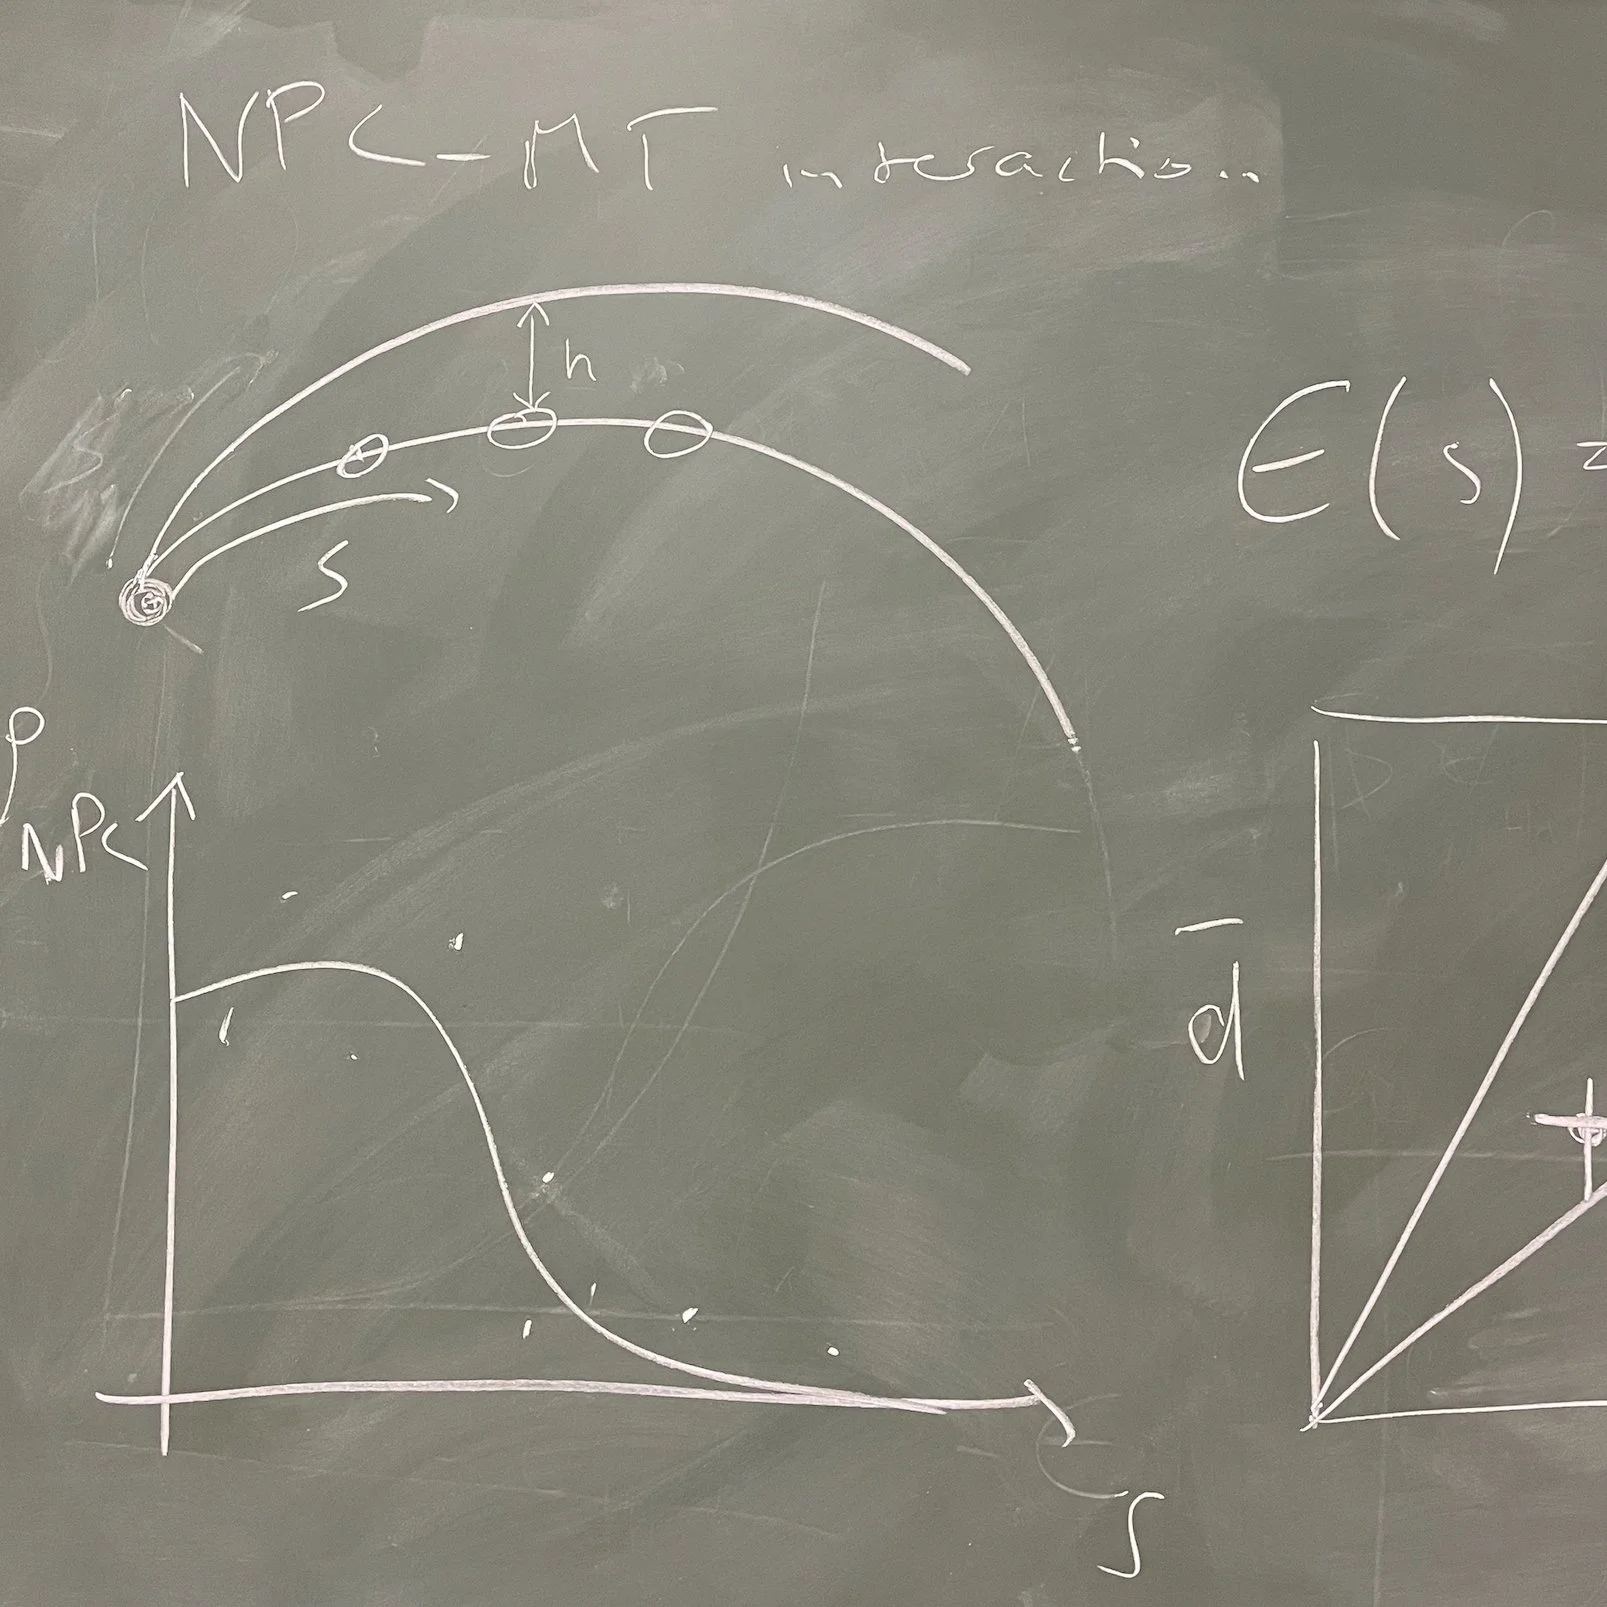 NPC-MT interaction
h
S
E(s) =
ρ
NPC
d̄
S